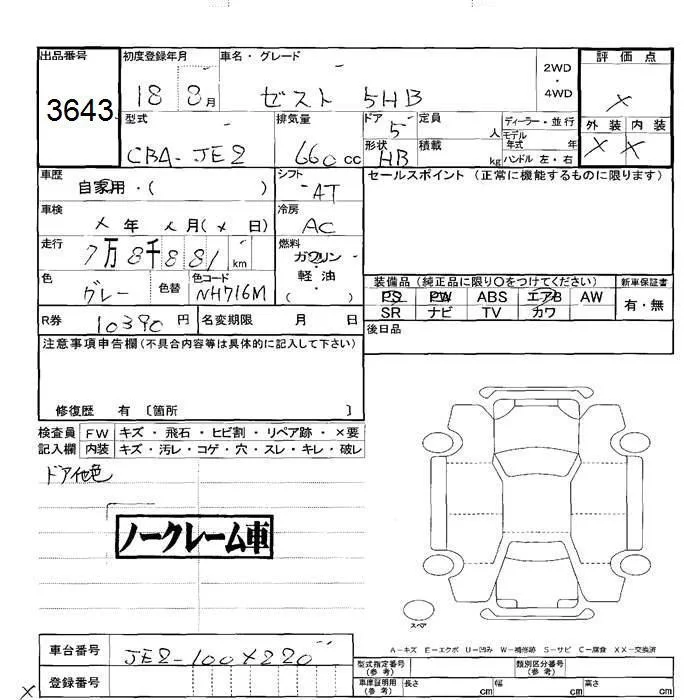 出品番号 初度登録年月 車名・グレード 2WD・4WD 評価点
3643 18 8月 ゼスト 5HB ×
型式 排気量 ドア 5 定員 人 ディーラー・並行 外装 内装
CBA-JE2 660cc 形状 HB 積載 kg モデル年式 年 ハンドル 左・右 × ×
車歴 自家用・( ) シフト AT セールスポイント(正常に機能するものに限ります)
車検 ×年 ×月(×日) 冷房 AC
走行 7万8千881km 燃料 ガソリン・軽油・( )
色 グレー 色替 色コード NH716M
装備品(純正品に限り○をつけてください) 新車保証書
PS PW ABS エアB AW 有・無
SR ナビ TV カワ
R券 10390円 名変期限 月 日 後日品
注意事項申告欄(不具合内容等は具体的に記入して下さい)
修復歴 有 〔箇所 〕
検査員 FW キズ・飛石・ヒビ割・リペア跡・×要
記入欄 内装 キズ・汚レ・コゲ・穴・スレ・キレ・破レ
ドア他色
ノークレーム車
スペア
A-キズ E-エクボ U-凹み W-補修跡 S-サビ C-腐食 XX-交換済
車台番号 JE2-100×220 型式指定番号(参考) 類別区分番号(参考)
× 登録番号 車庫証明用(参考) 長さ cm 幅 cm 高さ cm